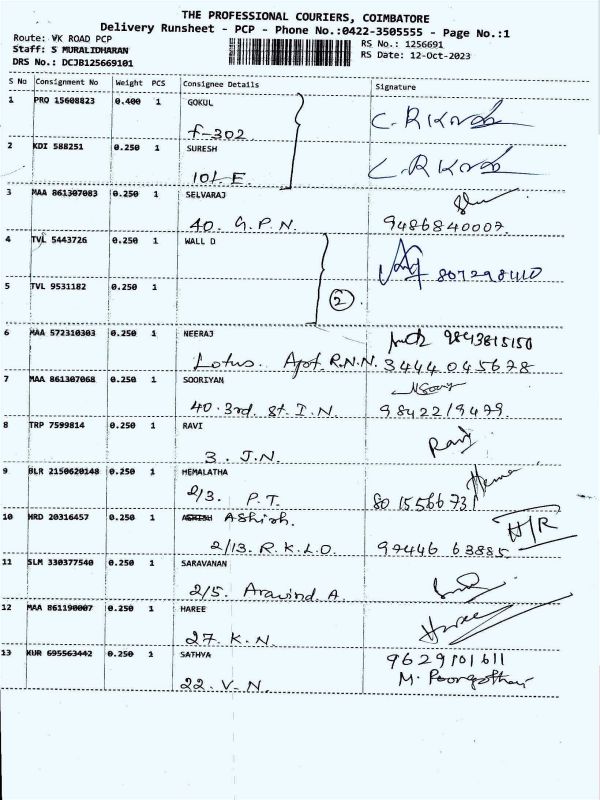 THE PROFESSIONAL COURIERS, COIMBATORE
Delivery Runsheet - PCP - Phone No.:0422-3505555 - Page No.:1
Route: VK ROAD PCP
Staff: S MURALIDHARAN
DRS No.: DCJB125669101
RS No.: 1256691
RS Date: 12-Oct-2023
S No Consignment No Weight PCS Consignee Details Signature
1 PRO 15608823 0.400 1 GOKUL
f-302
2 KDI 588251 0.250 1 SURESH
101-E.
3 MAA 861307083 0.250 1 SELVARAJ
40. G.P.N. 9486840007.
4 TVL 5443726 0.250 1 WALL D
5 TVL 9531182 0.250 1
2
6 MAA 572310303 0.250 1 NEERAJ 9843815150
Lotus. Apt. R.N.N. 3444045678
7 MAA 861307068 0.250 1 SOORIYAN
40. 3rd. St. I.N. 9842219479.
8 TRP 7599814 0.250 1 RAVI
3. J.N. Ravi
9 BLR 2150620148 0.250 1 HEMALATHA Hema
2/3. P.T. 8015566731
10 HRD 20316457 0.250 1 Ashish. H/R
2/13. R.K.L.O. 97446 63885.
11 SLM 330377540 0.250 1 SARAVANAN
2/5. Aravind. A.
12 MAA 861190007 0.250 1 HAREE
27. K.N. Haree
13 KUR 695563442 0.250 1 SATHYA 9629101611
22. V.N. M. Poongothai